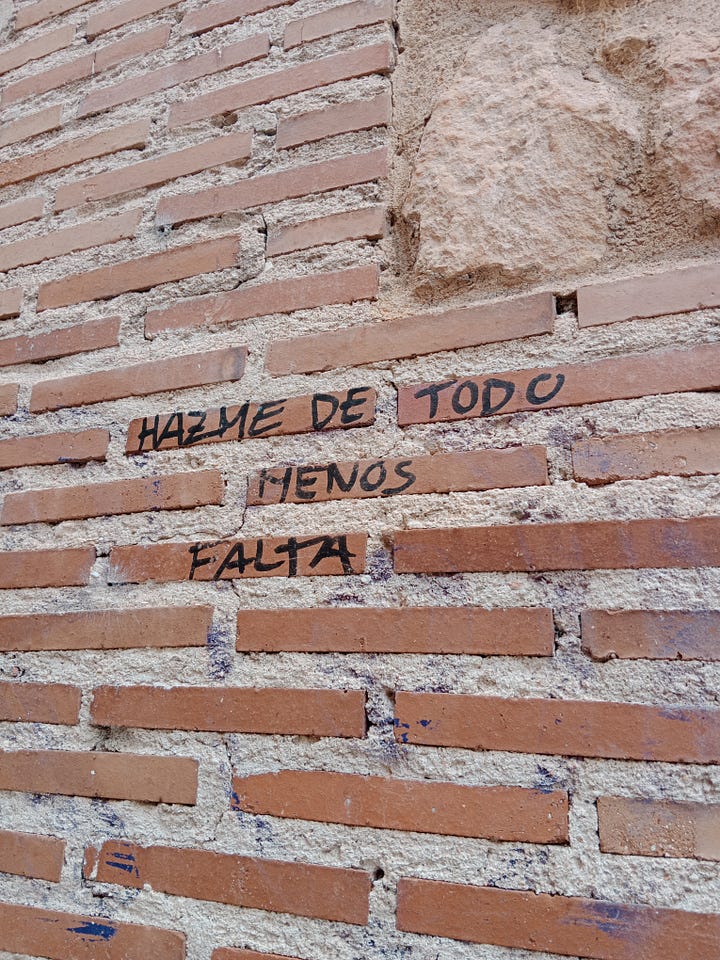 HAZME DE TODO
MENOS
FALTA